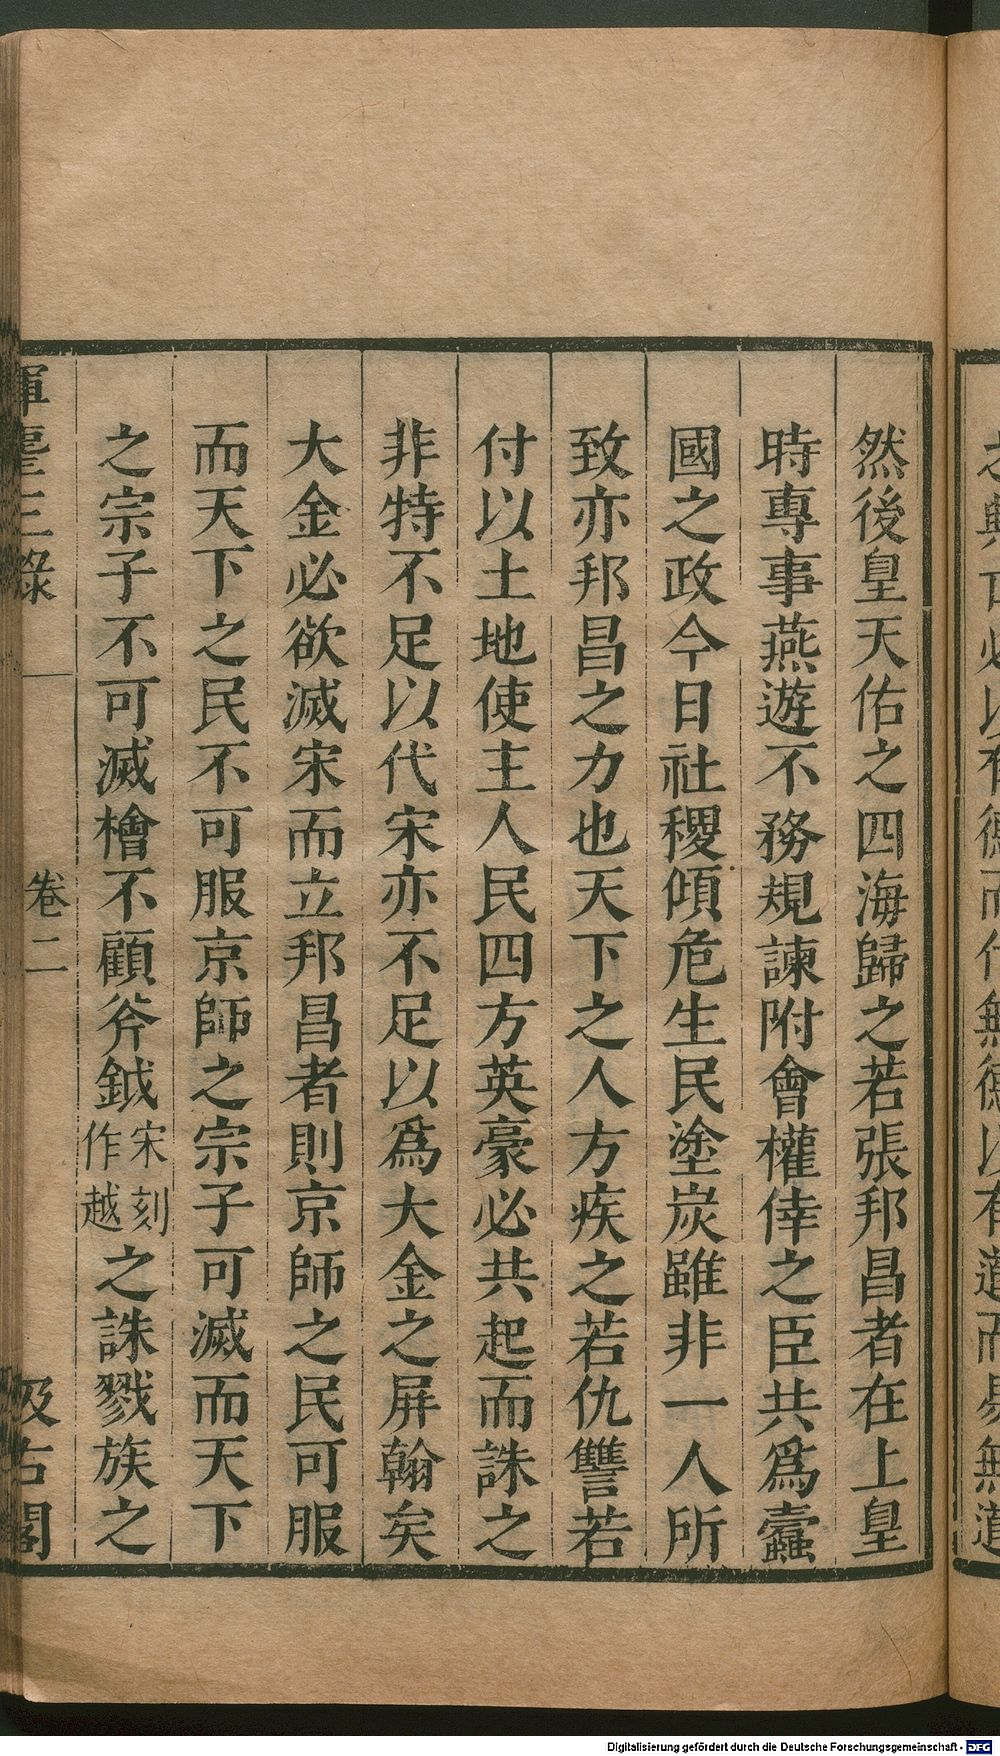 然後皇天佑之四海歸之若張邦昌者在上皇
時專事燕遊不務規諫附會權倖之臣共爲蠹
國之政今日社稷傾危生民塗炭雖非一人所
致亦邦昌之力也天下之人方疾之若仇讐若
付以土地使主人民四方英豪必共起而誅之
非特不足以代宋亦不足以爲大金之屏翰矣
大金必欲滅宋而立邦昌者則京師之民可服
而天下之民不可服京師之宗子可滅而天下
之宗子不可滅檜不顧斧鉞宋刻作越之誅戮族之
揮麈三錄 卷二 汲古閣
以有德而代無德以有道而易無道
Digitalisierung gefördert durch die Deutsche Forschungsgemeinschaft - DFG